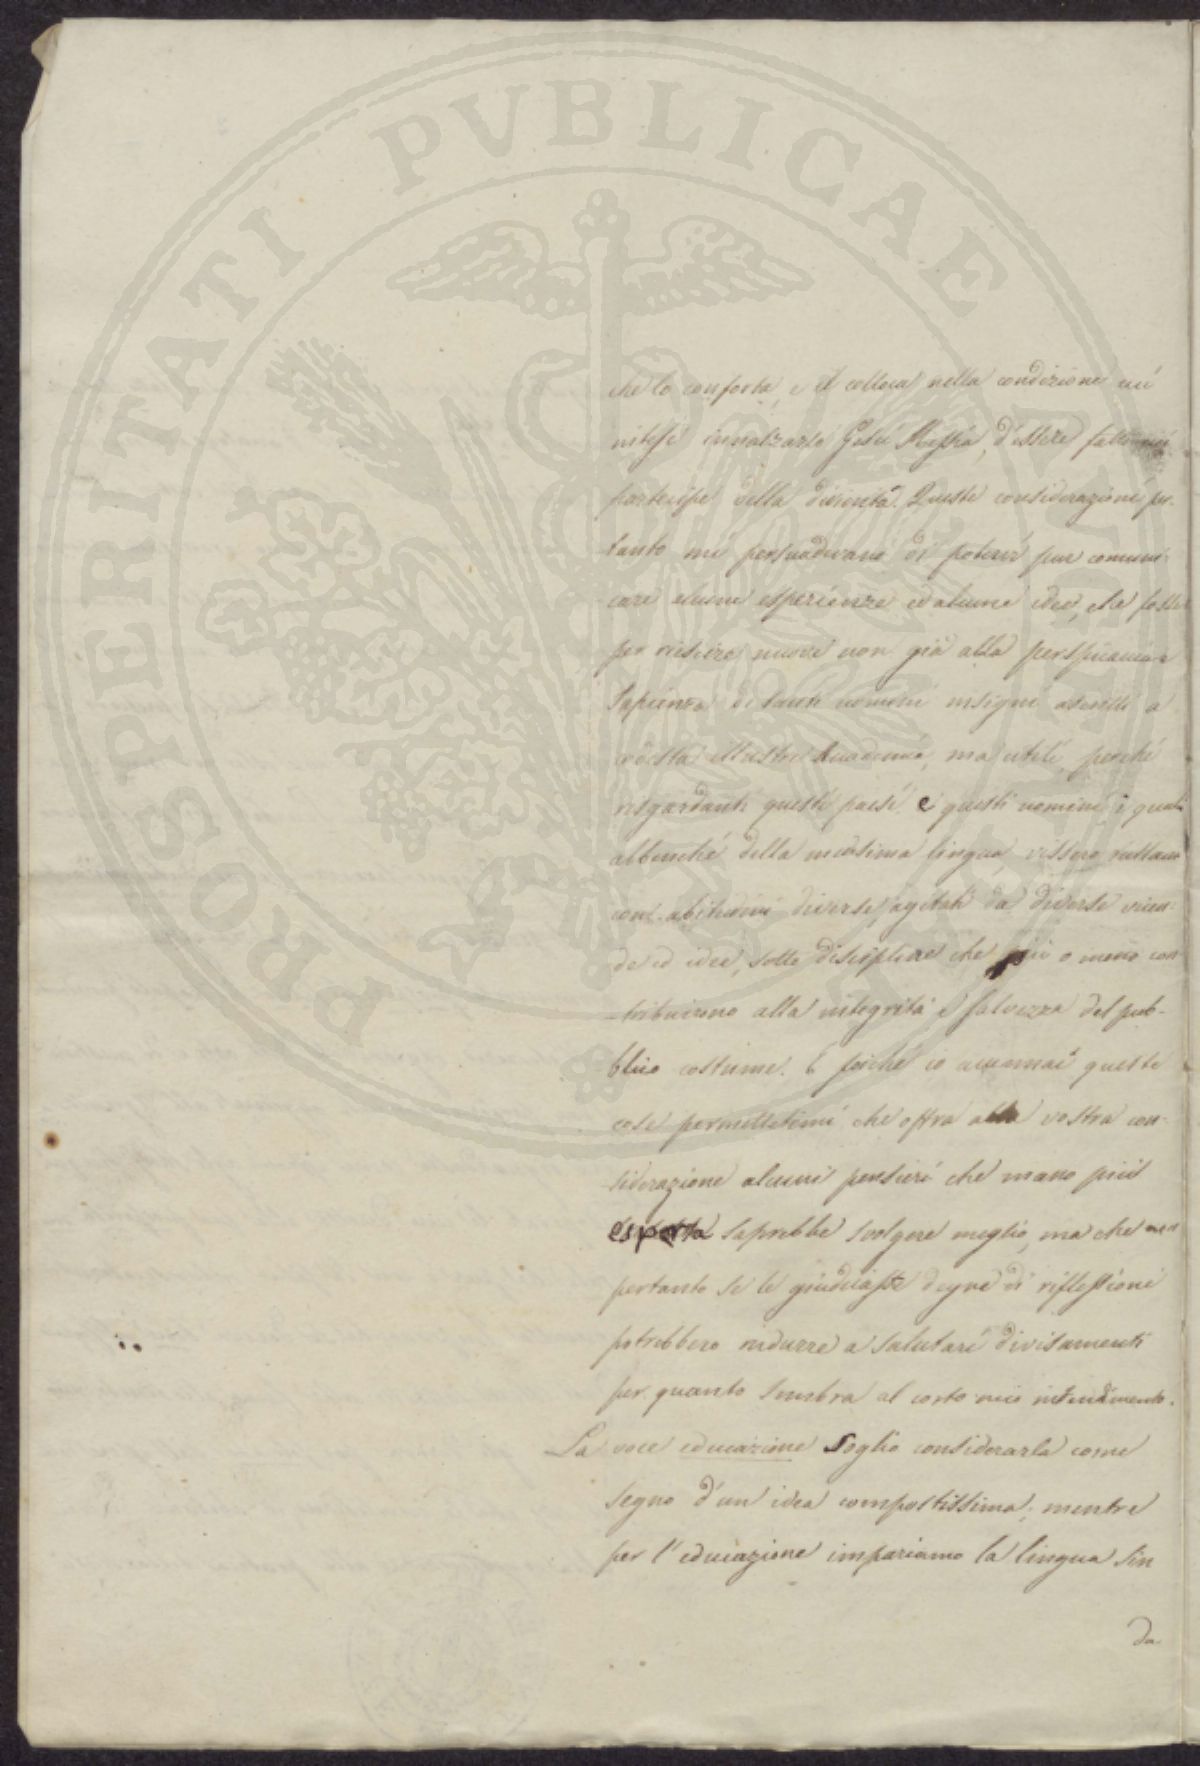 PROSPERITATI PVBLICAE
che lo conforta, e il colloca nella condizione cui
intese innalzarlo Gesù Messia, d'essere fatto
partecipe della divinità. Queste considerazioni per
tanto mi persuadevano di potervi pur comuni-
care alcune esperienze ed alcune idee, che fosser
per riescire nuove non già alla perspicacia e
sapienza di tanti uomini insigni ascritti a
codesta illustre Accademia, ma utili, perché
risgardanti questi paesi e questi uomini i quali
abbenché della medesima lingua, vissero
con abitudini diverse, agitati da diverse vicen-
de ed idee, sotto discipline che più o meno con
-tribuirono alla integrità e salvezza del pub-
blico costume. E poiché io accennai queste
cose permettetemi che offra alla vostra con-
siderazione alcuni pensieri che mano più
esperta saprebbe svolgere meglio, ma che non
pertanto se le giudicaste degne di riflessioni
potrebbero indurre a salutari divisamenti
per quanto sembra al corto mio intendimento.
La voce educazione soglio considerarla come
segno d'un idea compostissima; mentre
per l'educazione impariamo la lingua sin
da